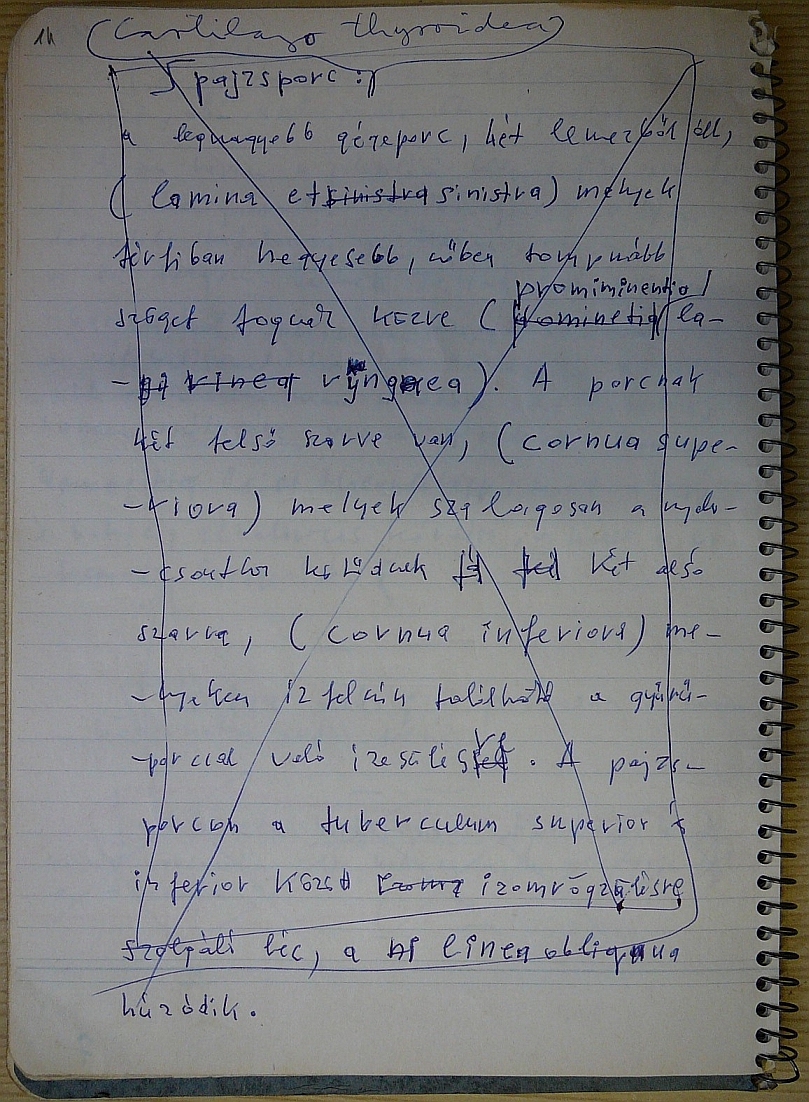 14 (Cartilago thyroidea)
pajzsporc :
a legnagyebb gégeporc, két lemezből áll,
(lamina et sinistra sinistra) melyek
férfiban hegyesebb, nőben tompább
promiminentia
szöget fognak közre (prominetia la-
- rinea ryngea). A porcnak
két felső szarve van, (cornua supe-
-riora) melyek szalagosan a nyelv-
-csonthor kötődnek két alsó
szarva, (cornua inferiora) me-
-lyeken iz felszín található a gyűrű-
-porccal való izesülés . A pajzs-
porcon a tuberculum superior és
inferior közt izomrögzülésre
szolgáló léc, a linea obliqua
húzódik.